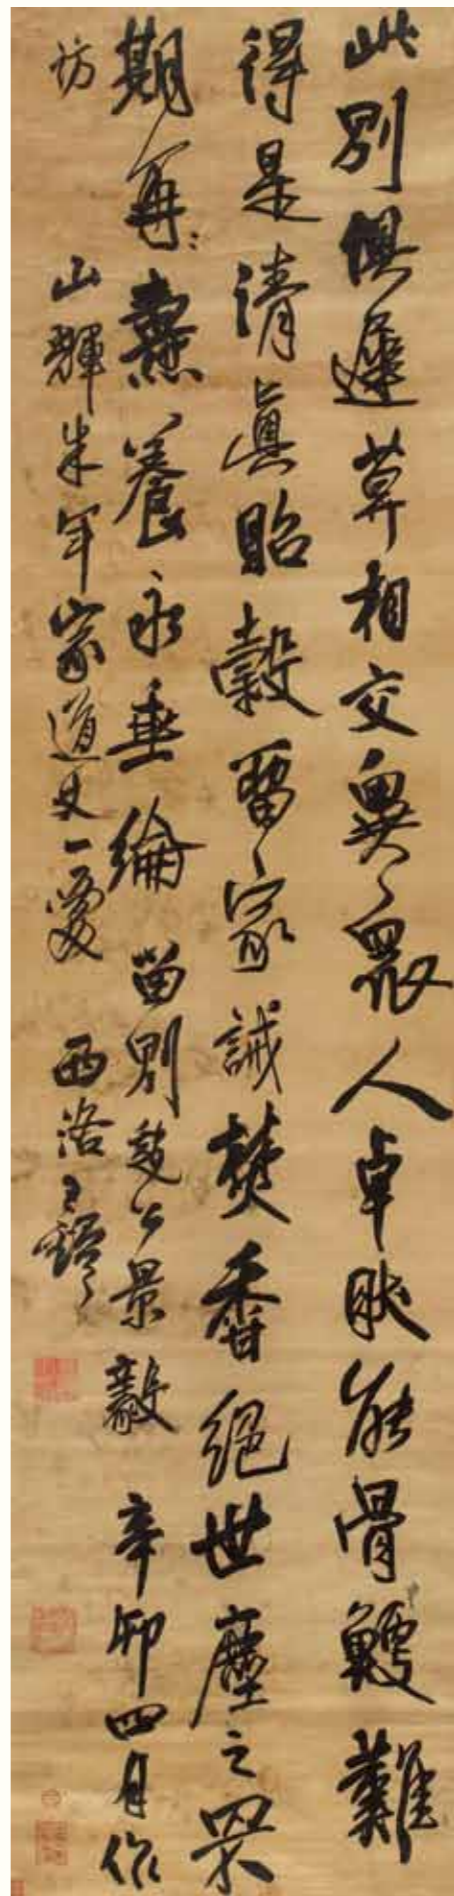 此別俱遲莫相交異眾人卓能骨鯁難
得是清真貽穀留家誡焚香絕世塵之罘
期再養永垂綸 留別趙公景毅 辛卯四月作
坊
山輝朱年家道丈一 西洛王鐸